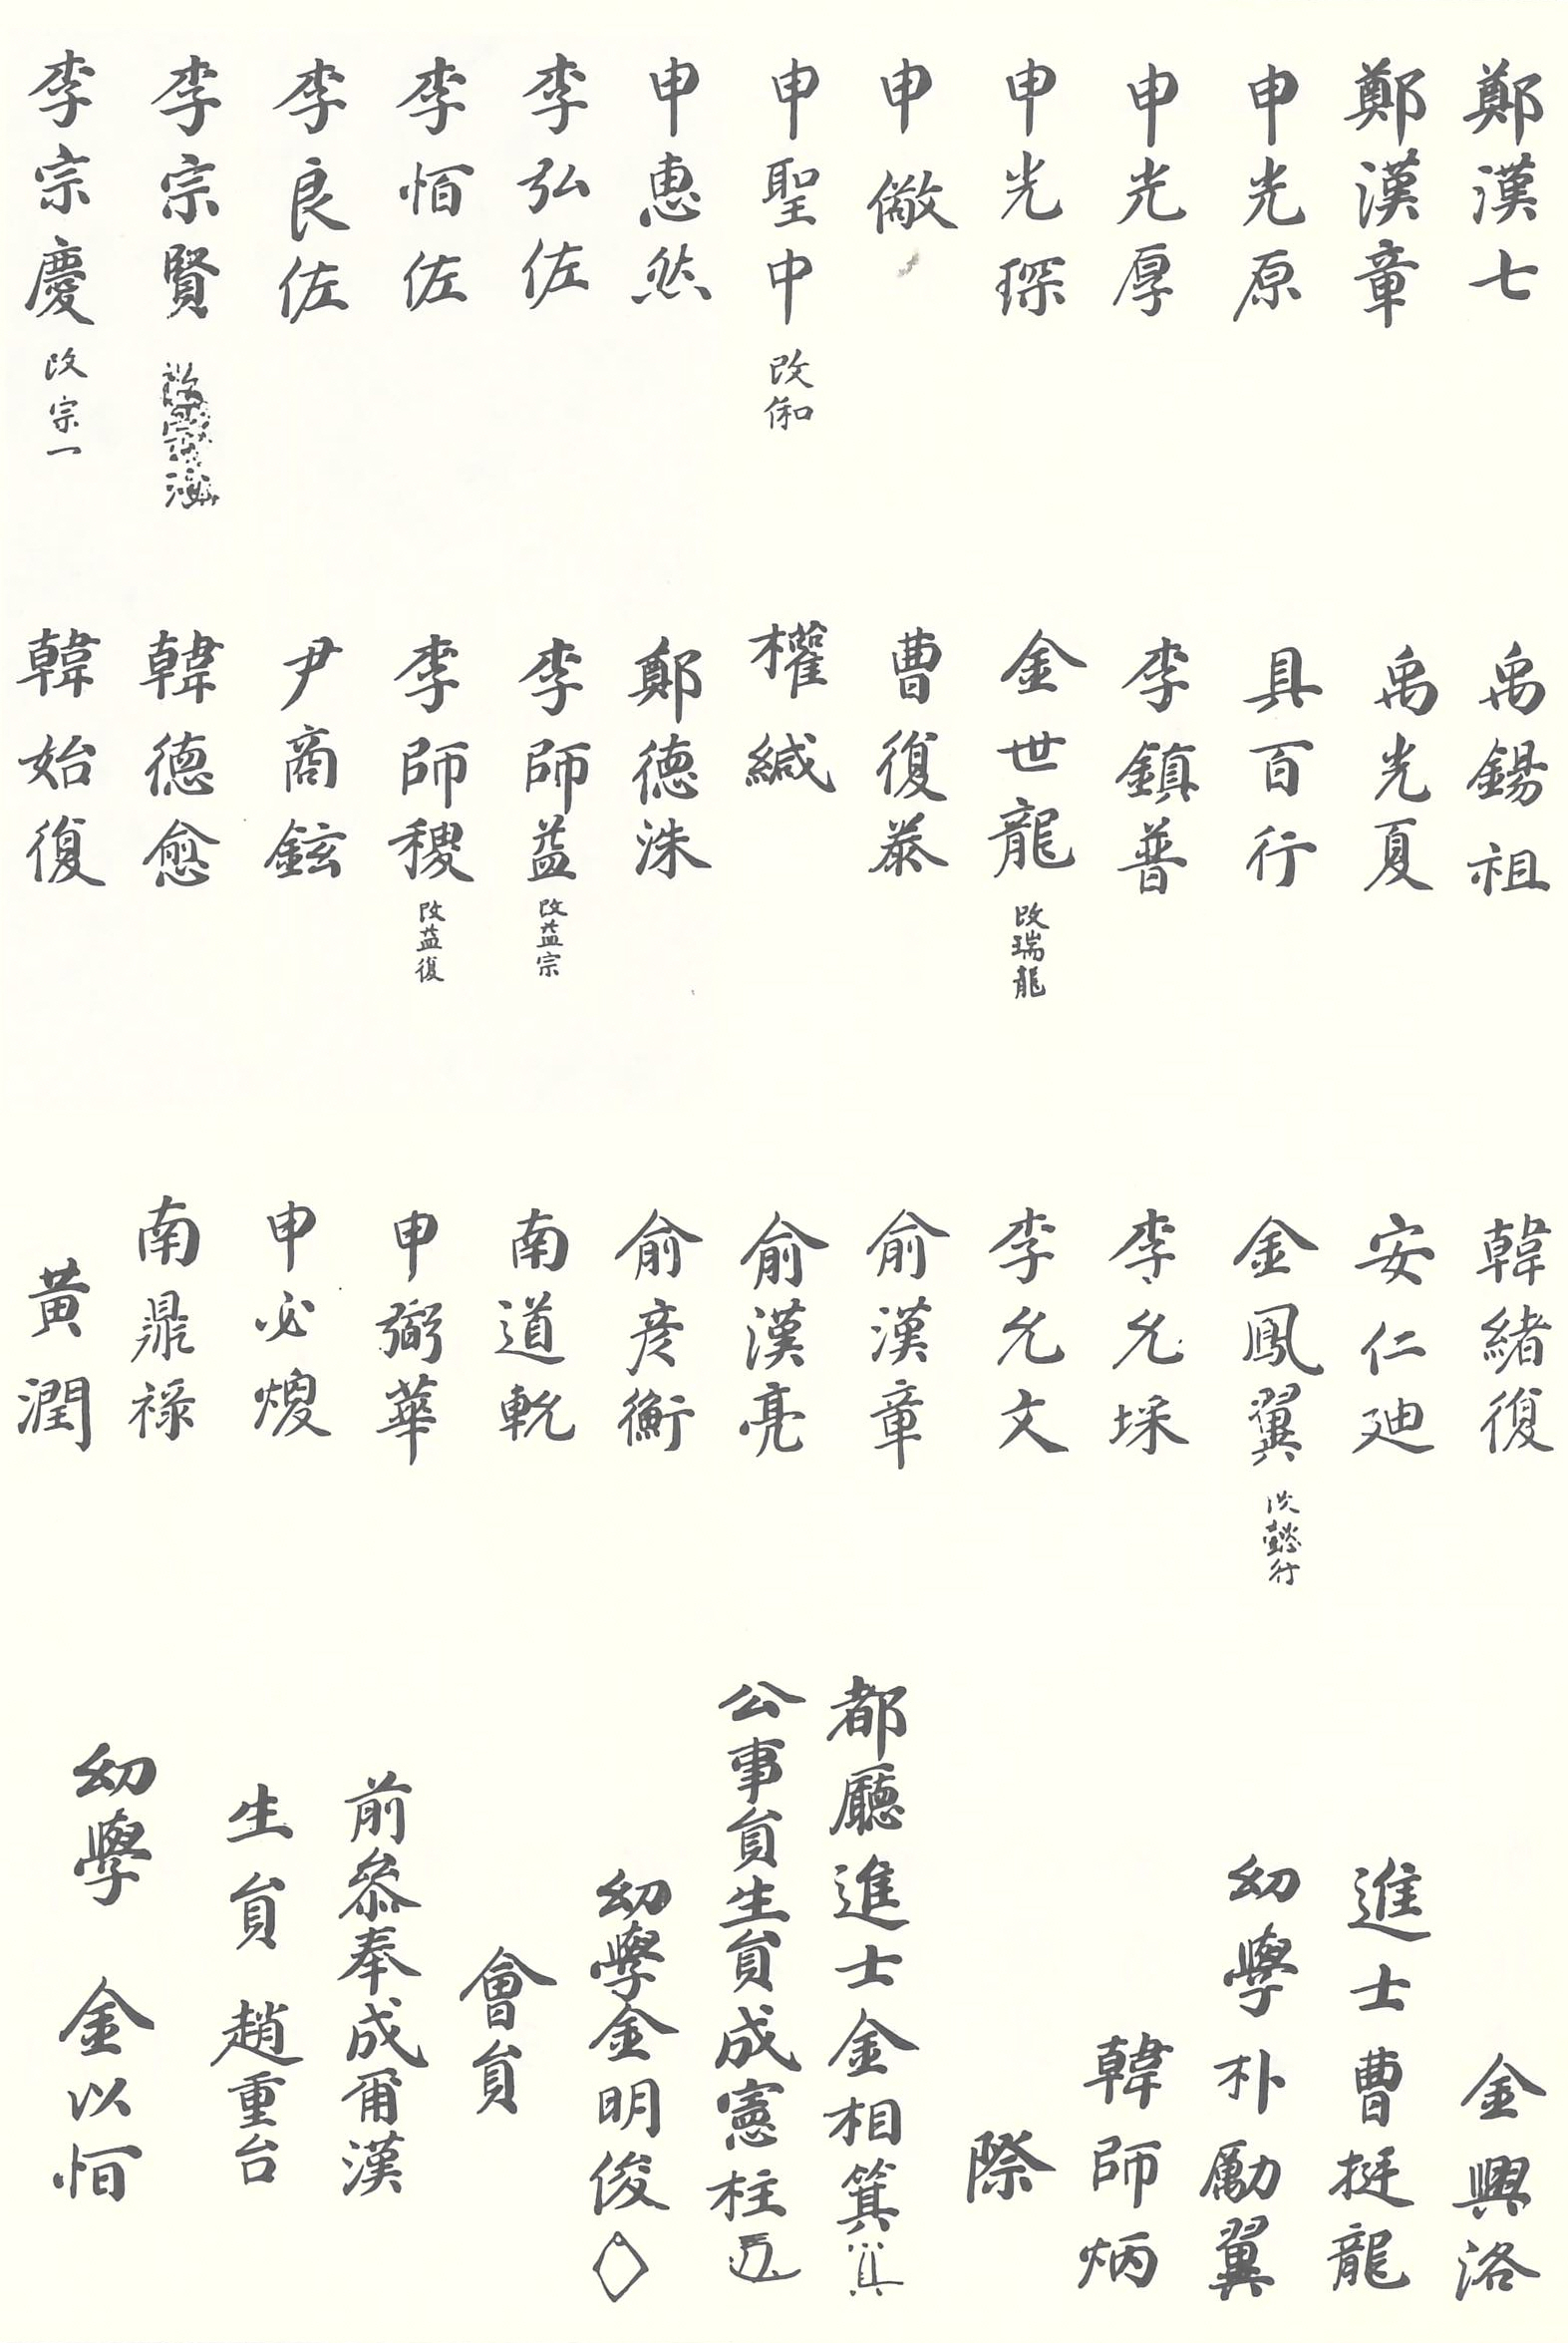 鄭漢七
鄭漢章
申光原
申光厚
申光琛
申儆
申聖中 改俰
申惠然
李弘佐
李佰佐
李良佐
李宗賢
李宗慶 改宗一
禹錫祖
禹光夏
具百行
李鎮普
金世龍 改瑞龍
曹復泰
權緎
鄭德洙
李師益 改益宗
李師稷 改益復
尹商鉉
韓德愈
韓始復
韓緒復
安仁廸
金鳳翼
李允埰
李允文
俞漢章
俞漢亮
俞彦衡
南道軏
申弼華
申必熲
南鼎祿
黃潤
金興洛
進士曹挺龍
幼學朴勵翼
韓師炳
際
都廳進士金相箕
公事員生員成憲柱
幼學金明俊
會員
前叅奉成甭漢
生員 趙重台
幼學 金以恒